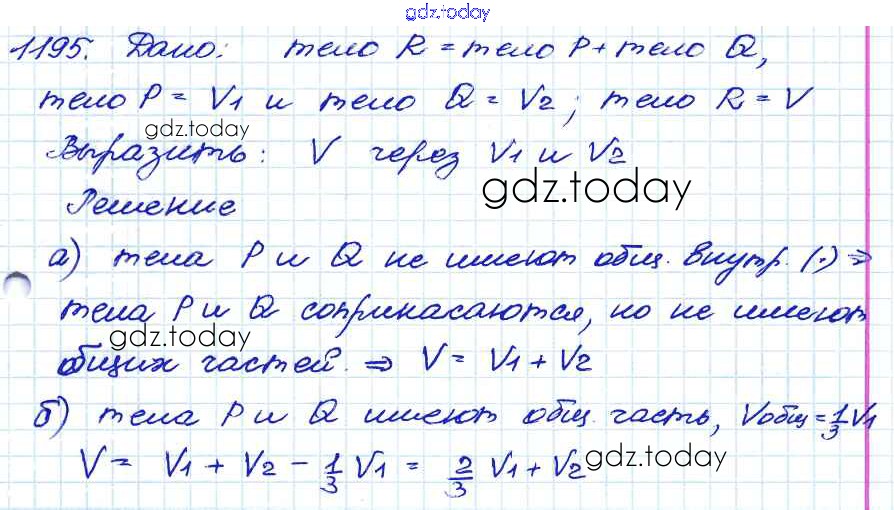 gdz.today
1195. Дано: тело R = тело P + тело Q,
тело P = V1 и тело Q = V2; тело R = V
gdz.today
Выразить: V через V1 и V2
gdz.today
Решение
а) тела P и Q не имеют общ. внутр. (·) ⇒
тела P и Q соприкасаются, но не имеют
gdz.today
общих частей. ⇒ V = V1 + V2
б) тела P и Q имеют общ. часть, Vобщ = 1/3 V1
V = V1 + V2 − 1/3 V1 = 2/3 V1 + V2
gdz.today